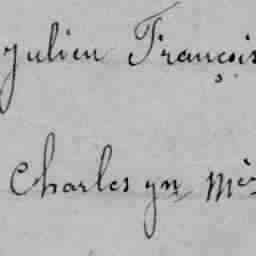 Julien François
Charles yn Mès